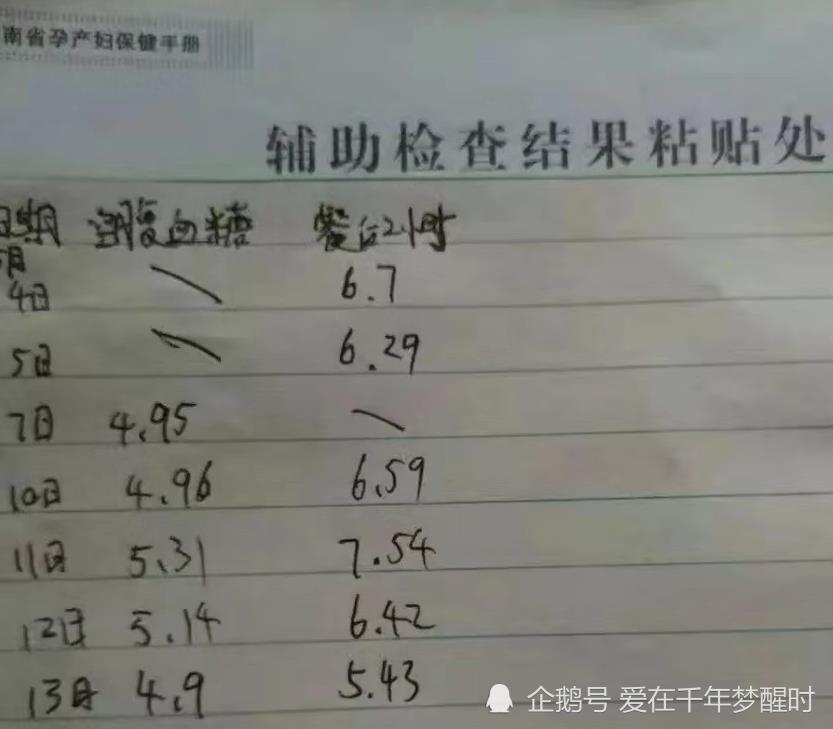 南省孕产妇保健手册
辅助检查结果粘贴处
日期 空腹血糖 餐后2小时
月
4日 \ 6.7
5日 \ 6.29
7日 4.95 \
10日 4.96 6.59
11日 5.31 7.54
12日 5.14 6.42
13日 4.9 5.43
企鹅号 爱在千年梦醒时